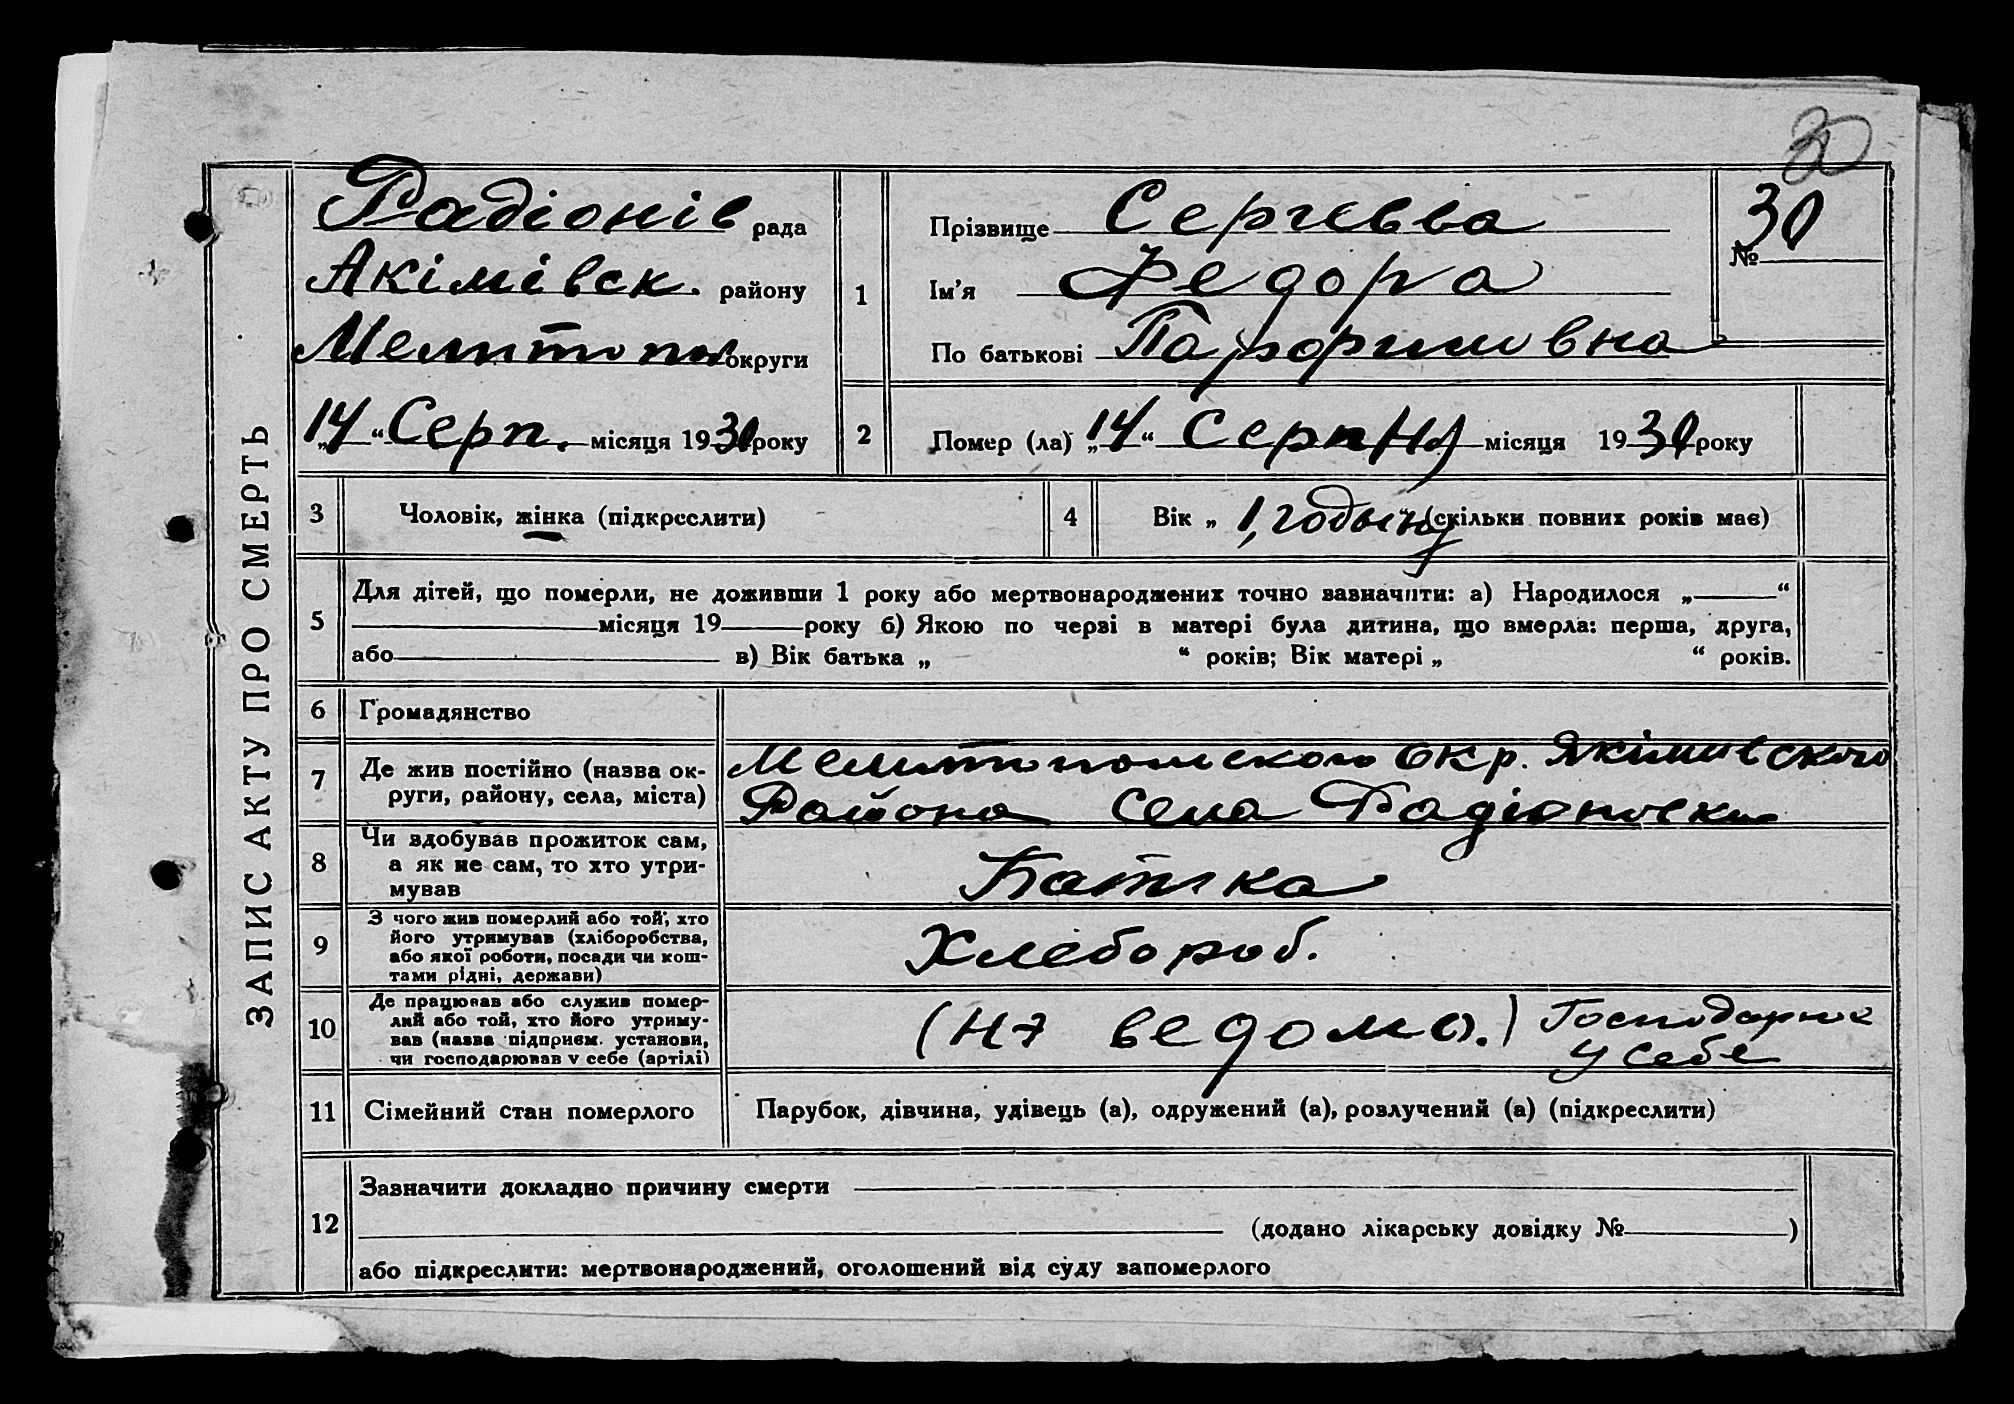 30
ЗАПИС АКТУ ПРО СМЕРТЬ
Радіонів рада
Акімівск. району
Мелитопол округи
„14“ Серп. місяця 1930 року
1
Прізвище Сергєєва
Ім'я Федора
По батькові Парфилиовна
№ 30
2
Помер (ла) „14“ Серпня місяця 1930 року
3
Чоловік, жінка (підкреслити)
4
Вік „ 1, годыну “ (скільки повних років має)
5
Для дітей, що померли, не доживши 1 року або мертвонароджених точно зазначити: а) Народилося „ “
місяця 19 року б) Якою по черзі в матері була дитина, що вмерла: перша, друга,
або в) Вік батька „ “ років; Вік матері „ “ років.
6
Громадянство
7
Де жив постійно (назва ок-
руги, району, села, міста)
Мелитопольского окр. Якимивского
Района Села Радіоновки
8
Чи здобував прожиток сам,
а як не сам, то хто утри-
мував
Батька
9
З чого жив померлий або той, хто
його утримував (хліборобства,
або якої роботи, посади чи кош-
тами рідні, держави)
Хлебороб.
10
Де працював або служив помер-
лий або той, хто його утриму-
вав (назва підприєм. установи,
чи господарював у себе (артілі)
(не ведомо.) Господарюе
у себе
11
Сімейний стан померлого
Парубок, дівчина, удівець (а), одружений (а), розлучений (а) (підкреслити)
12
Зазначити докладно причину смерти
(додано лікарську довідку № )
або підкреслити: мертвонароджений, оголошений від суду запомерлого